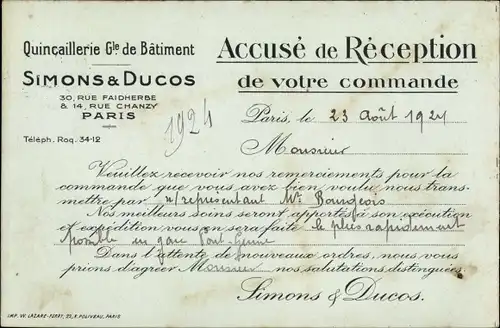 Quinçaillerie Gle de Bâtiment
SIMONS & DUCOS
30, RUE FAIDHERBE
& 14, RUE CHANZY
PARIS
Téléph. Roq. 34-12
1924
Accusé de Réception
de votre commande
Paris, le 23 Août 1924
Monsieur
Veuillez recevoir nos remerciements pour la
commande que vous avez bien voulu nous trans-
mettre par n/représentant Mr Bourgeois
Nos meilleurs soins seront apportés à son exécution
et expédition vous en sera faite le plus rapidement
possible en gare
Dans l'attente de nouveaux ordres, nous vous
prions d'agréer Monsieur nos salutations distinguées.
Simons & Ducos.
IMP. W. LAZARE-FERRY, 21, R. POLIVEAU, PARIS